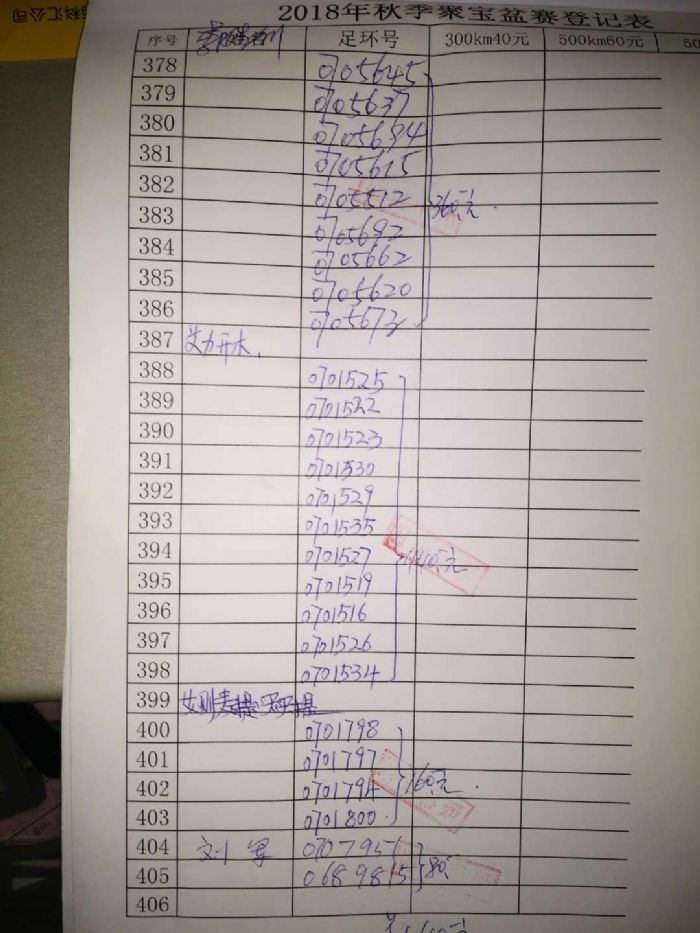 2018年秋季聚宝盆赛登记表
序号 足环号 300km40元 500km60元 50
378 0705645
379 0705637
380 0705694
381 0705615
382 0705512
383 0705692 360元
384 0705662
385 0705620
386 0705673
387 艾力开木
388 0701525
389 0701522
390 0701523
391 0701530
392 0701529
393 0701535
394 0701527 440元
395 0701519
396 0701516
397 0701526
398 0701534
399
400 0701798
401 0701797
402 0701794 160元
403 0701800
404 刘军 0707951
405 0689815 80
406